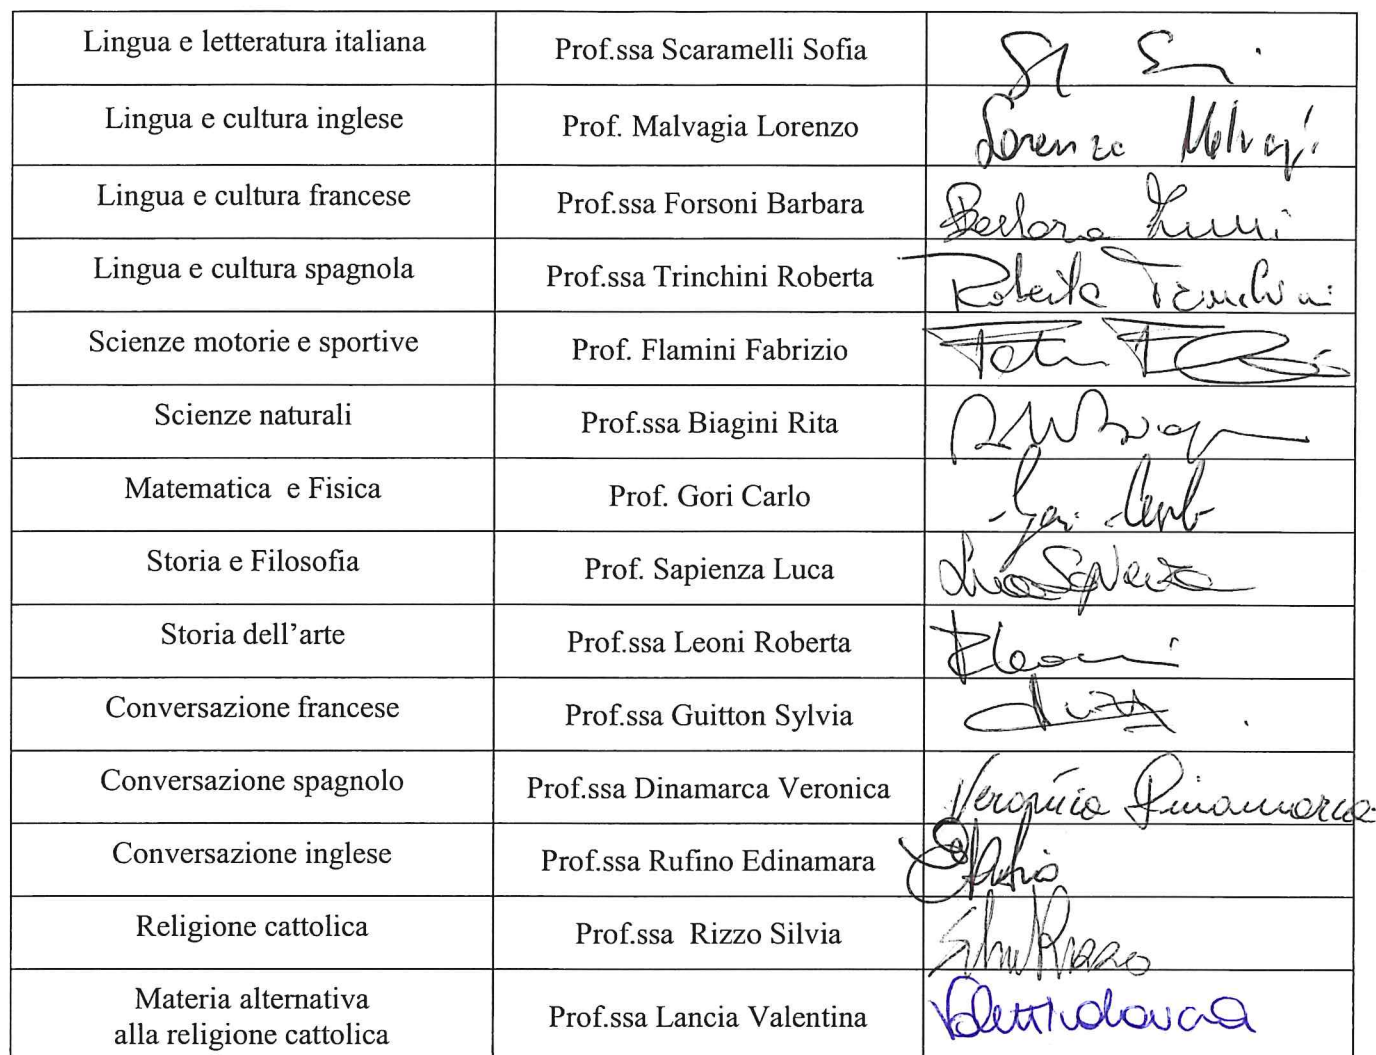 Lingua e letteratura italiana Prof.ssa Scaramelli Sofia
Lingua e cultura inglese Prof. Malvagia Lorenzo Lorenzo
Lingua e cultura francese Prof.ssa Forsoni Barbara Barbara
Lingua e cultura spagnola Prof.ssa Trinchini Roberta Roberta Trinchini
Scienze motorie e sportive Prof. Flamini Fabrizio
Scienze naturali Prof.ssa Biagini Rita
Matematica e Fisica Prof. Gori Carlo Gori Carlo
Storia e Filosofia Prof. Sapienza Luca Luca Sapienza
Storia dell'arte Prof.ssa Leoni Roberta RLeoni
Conversazione francese Prof.ssa Guitton Sylvia
Conversazione spagnolo Prof.ssa Dinamarca Veronica Veronica Dinamarca
Conversazione inglese Prof.ssa Rufino Edinamara
Religione cattolica Prof.ssa Rizzo Silvia Rizzo
Materia alternativa
alla religione cattolica Prof.ssa Lancia Valentina